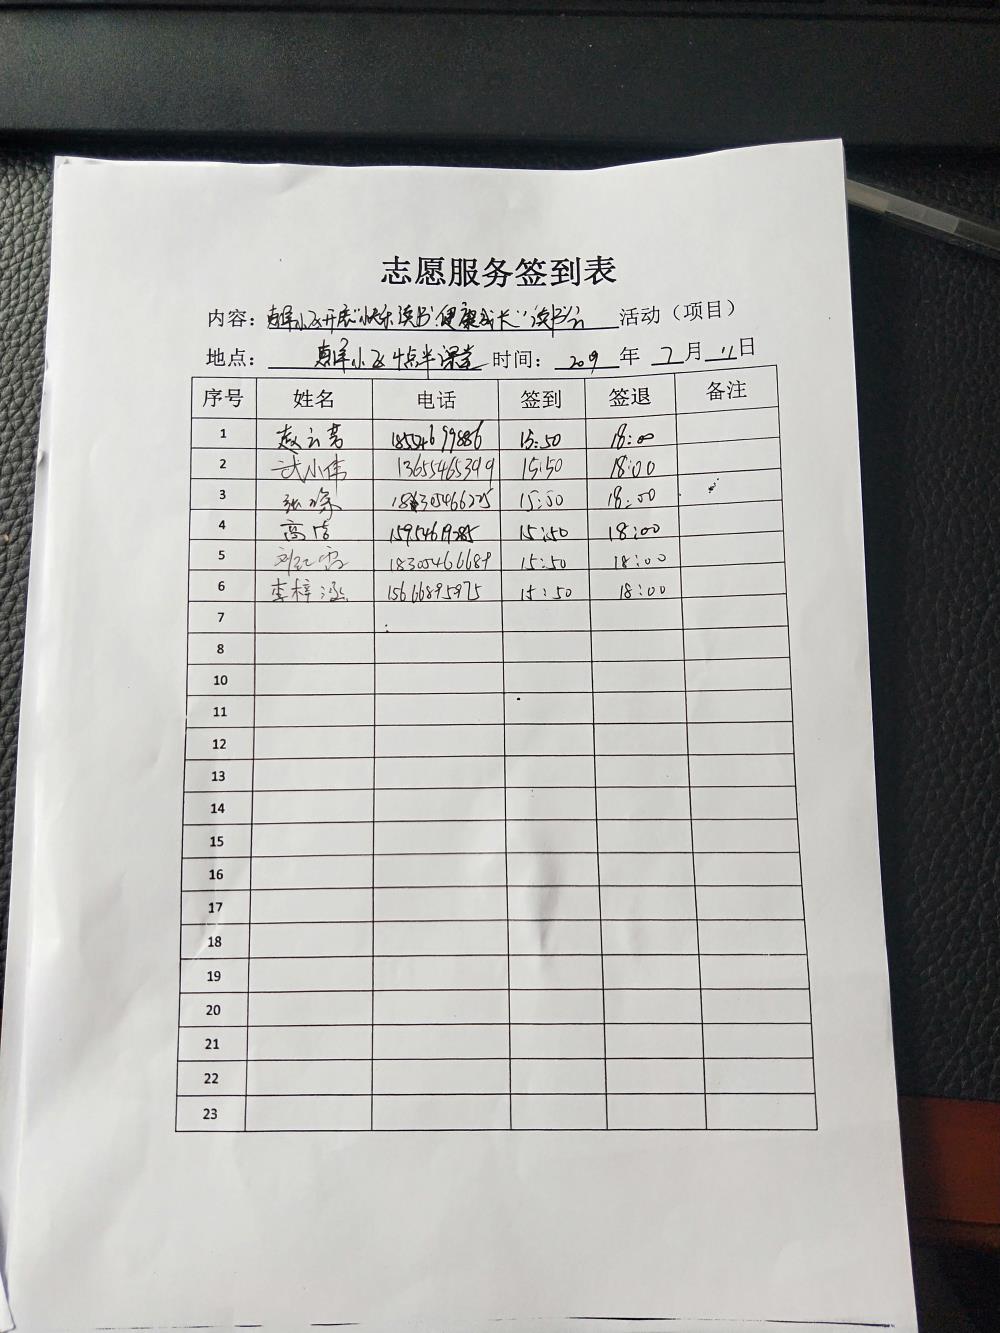 志愿服务签到表
内容：小区开展"快乐读书 健康成长"读书会 活动（项目）
地点：小区四点半课堂 时间：2019 年 7 月 11 日
序号 姓名 电话 签到 签退 备注
1 赵 15:50 18:00
2 武小伟 13655465399 15:50 18:00
3 张 15:50 18:00
4 高洁 15954619285 15:50 18:00
5 刘红霞 18305466689 15:50 18:00
6 李梓涵 15666895975 15:50 18:00
7
8
10
11
12
13
14
15
16
17
18
19
20
21
22
23